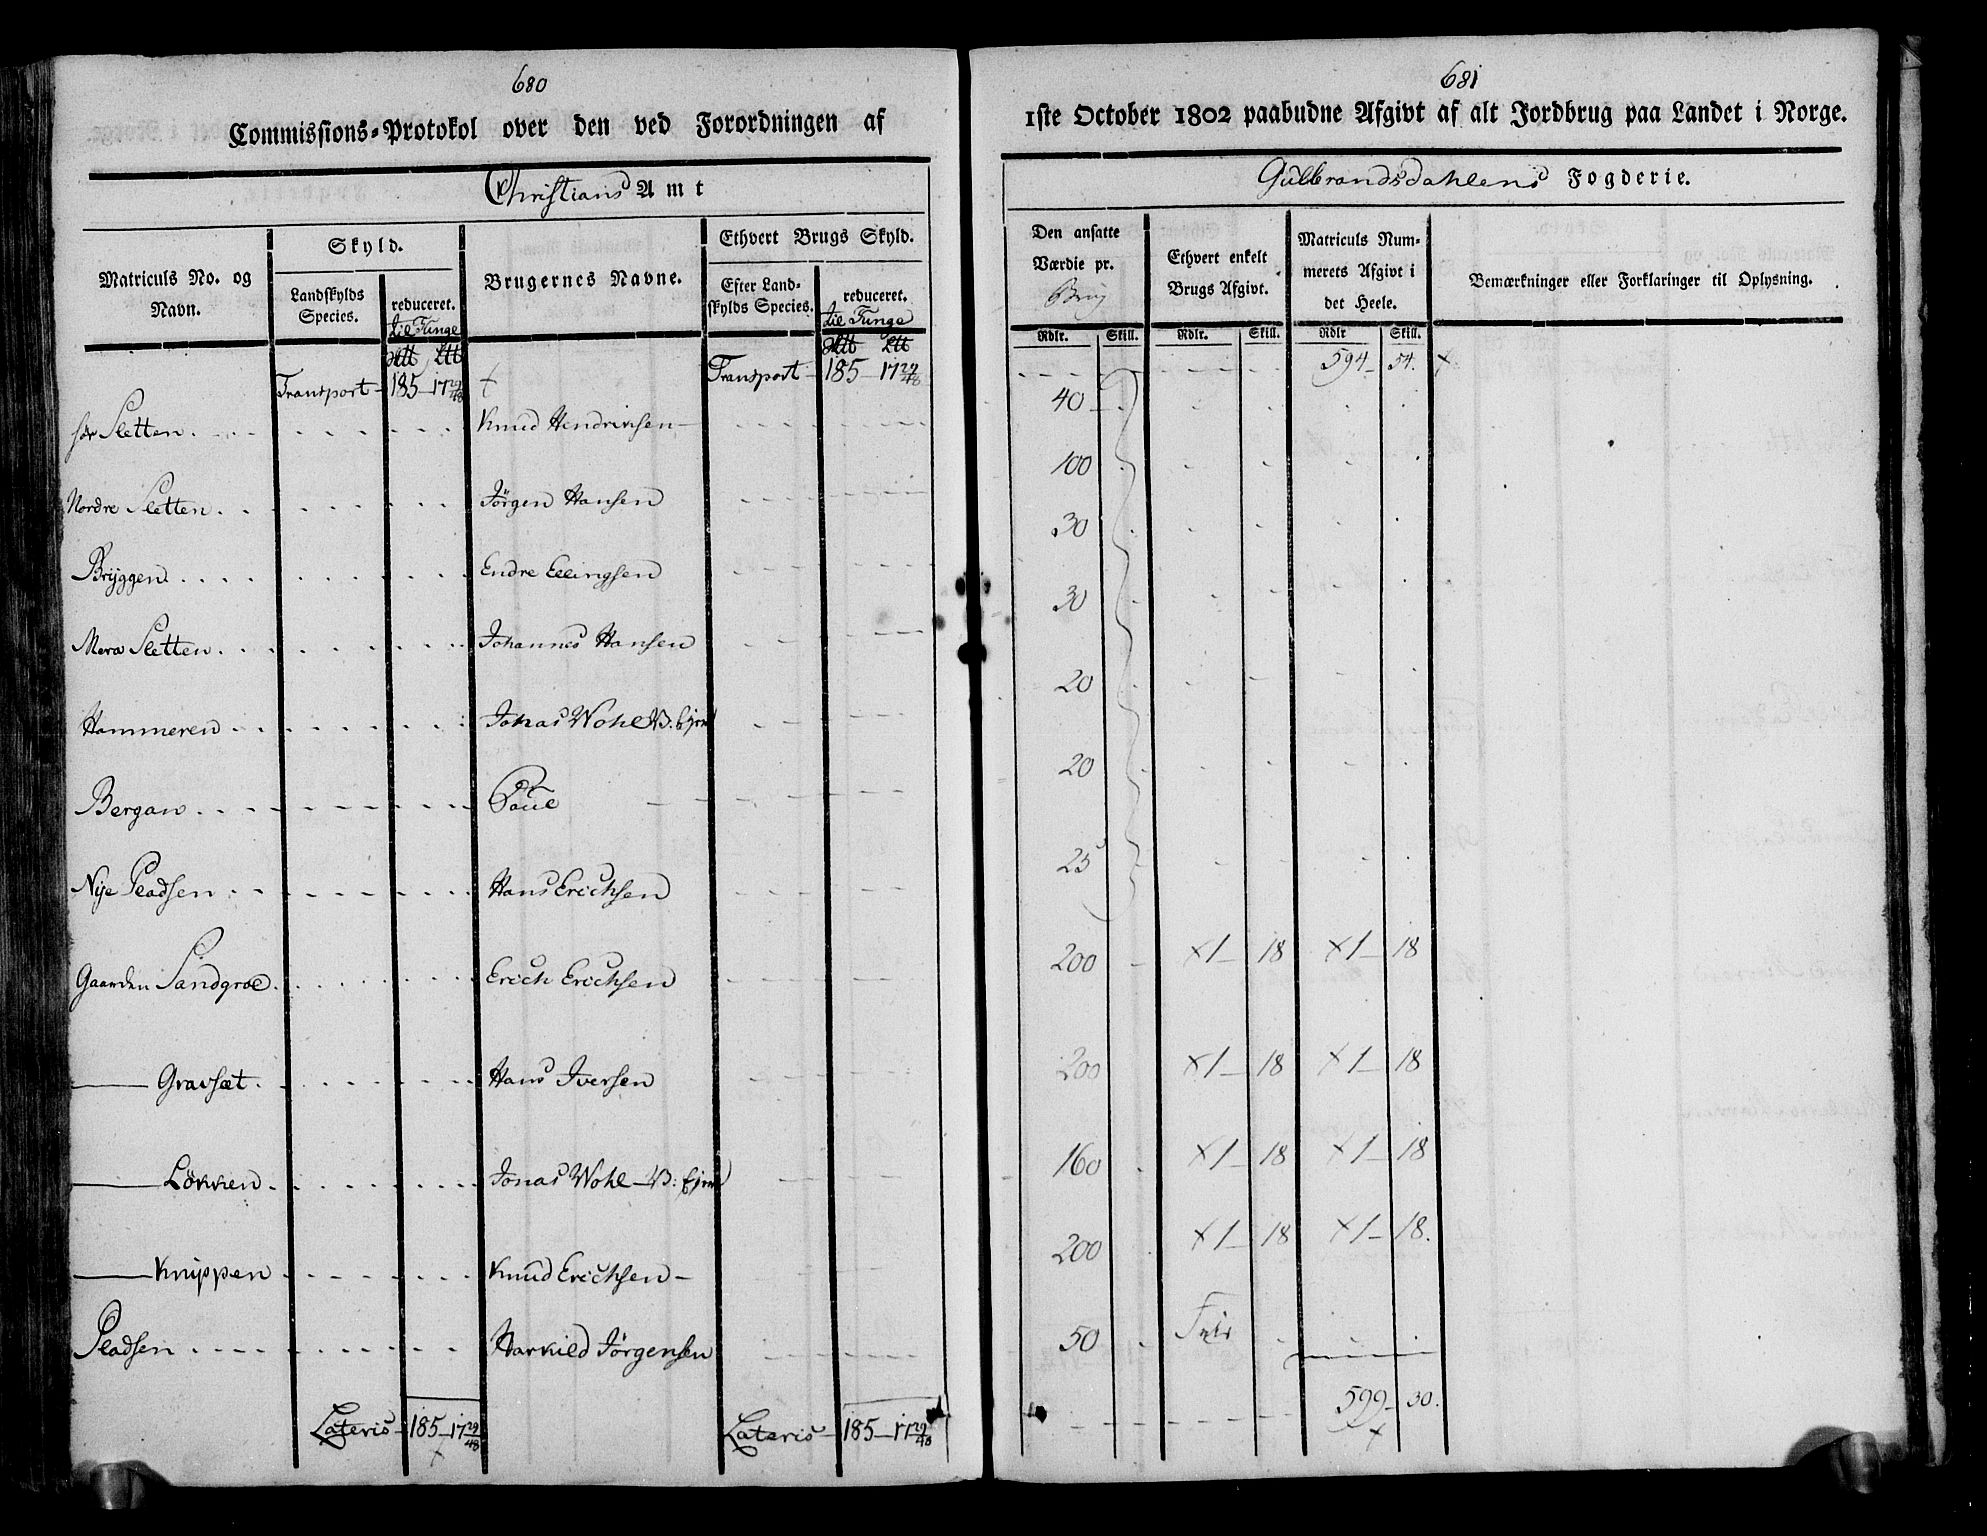 680
Commissions-Protokol over den ved Forordningen af
Christians Amt
Matriculs No. og Navn.
Skyld.
Landskylds Species.
reduceret.
til Tunge
Brugernes Navne.
Ethvert Brugs Skyld.
Efter Landskylds Species.
reduceret.
til Tunge
Transport - 185 - 17 29/48 Transport - 185 - 17 29/48
sör Sletten Knud Hendrichsen
Nordre Sletten Jörgen Hansen
Bryggen Endre Ellingsen
Sletten Johannes Hansen
Hammeren Jonas Wohl
Bergan Poul
Nye Pladsen Hans Erichsen
Gaarden Sandgroe Erich Erichsen
Gravsæt Hans Iversen
Lökken Jonas Wohl
Knippen Knud Erichsen
Pladsen Harkild Jörgensen
Lateris - 185 - 17 29/48 Lateris - 185 - 17 29/48
681
1ste October 1802 paabudne Afgivt af alt Jordbrug paa Landet i Norge.
Gulbrandsdahlens Fogderie.
Den ansatte Værdie pr. Brug
Ethvert enkelt Brugs Afgivt.
Matriculs Nummerets Afgivt i det Heele.
Bemærkninger eller Forklaringer til Oplysning.
Rdlr. Skill. Rdlr. Skill. Rdlr Skill.
594 54.
40
100
30
30
20
20
25
200 1 18 1 18
200 1 18 1 18
160 1 18 1 18
200 1 18 1 18.
50 Frie
599 30.